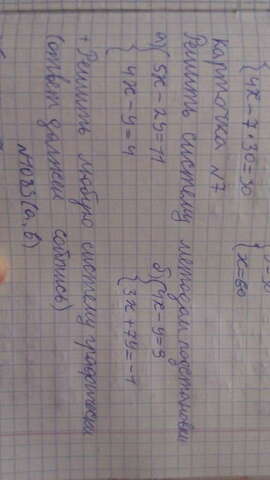 {4x - 7·30 = 30
x = 60
карточка N7
Решить систему методом подстановки
а) {5x - 2y = 11
4x - y = 4
б) {4x - y = 9
3x + 7y = -1
+ Решить любую систему графически
(ответ должен совпасть)
N1033(а, в)